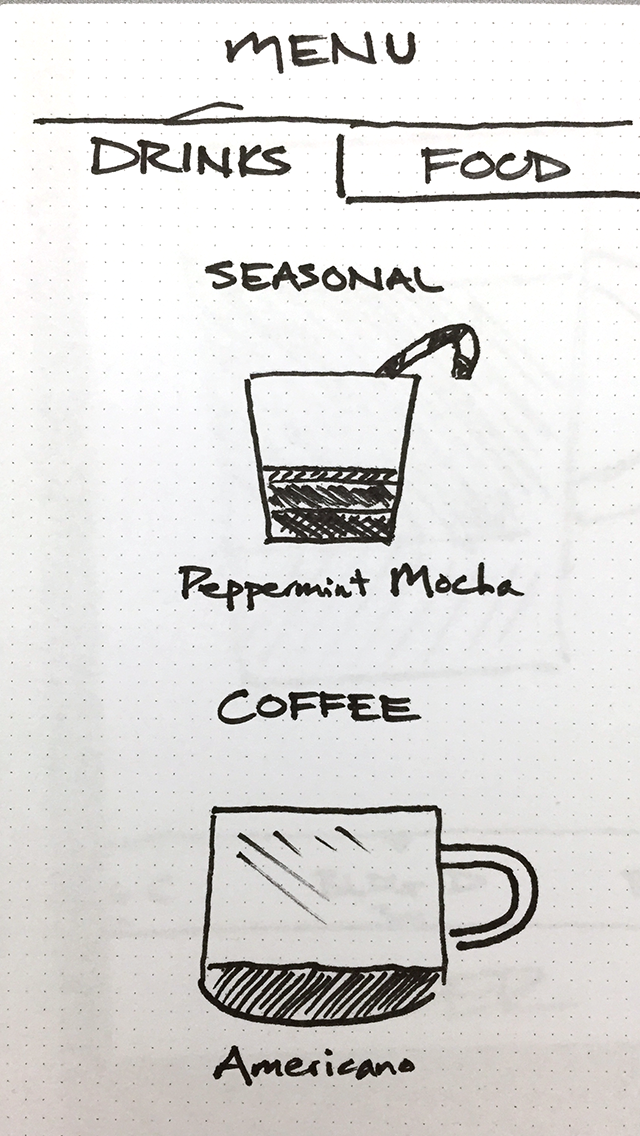 MENU
DRINKS | FOOD
SEASONAL
Peppermint Mocha
COFFEE
Americano